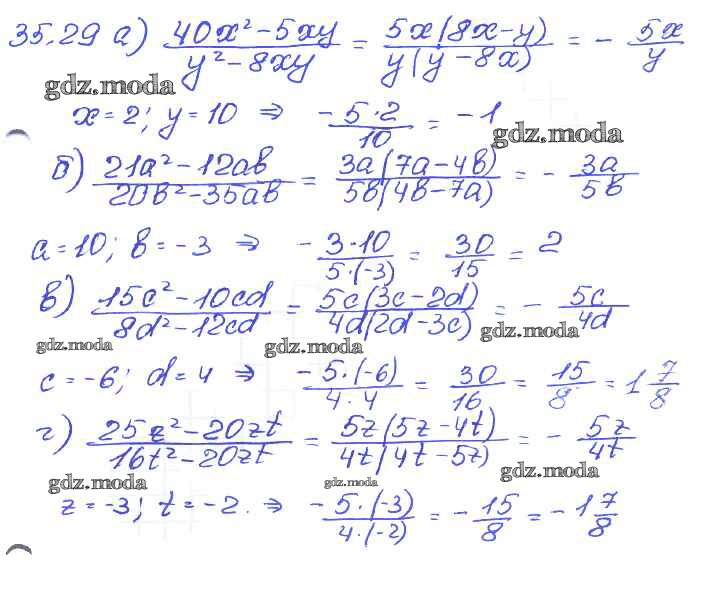 35.29 а) (40x² - 5xy)/(y² - 8xy) = 5x(8x-y)/y(y-8x) = - 5x/y
gdz.moda
x = 2; y = 10 ⇒ - 5·2/10 = -1
gdz.moda
б) (21a² - 12ab)/(20b² - 35ab) = 3a(7a-4b)/5b(4b-7a) = - 3a/5b
a = 10; b = -3 ⇒ - 3·10/5·(-3) = 30/15 = 2
в) (15c² - 10cd)/(8d² - 12cd) = 5c(3c-2d)/4d(2d-3c) = - 5c/4d
gdz.moda gdz.moda gdz.moda
c = -6; d = 4 ⇒ - 5·(-6)/4·4 = 30/16 = 15/8 = 1 7/8
г) (25z² - 20zt)/(16t² - 20zt) = 5z(5z-4t)/4t(4t-5z) = - 5z/4t
gdz.moda gdz.moda gdz.moda
z = -3; t = -2. ⇒ - 5·(-3)/4·(-2) = - 15/8 = -1 7/8